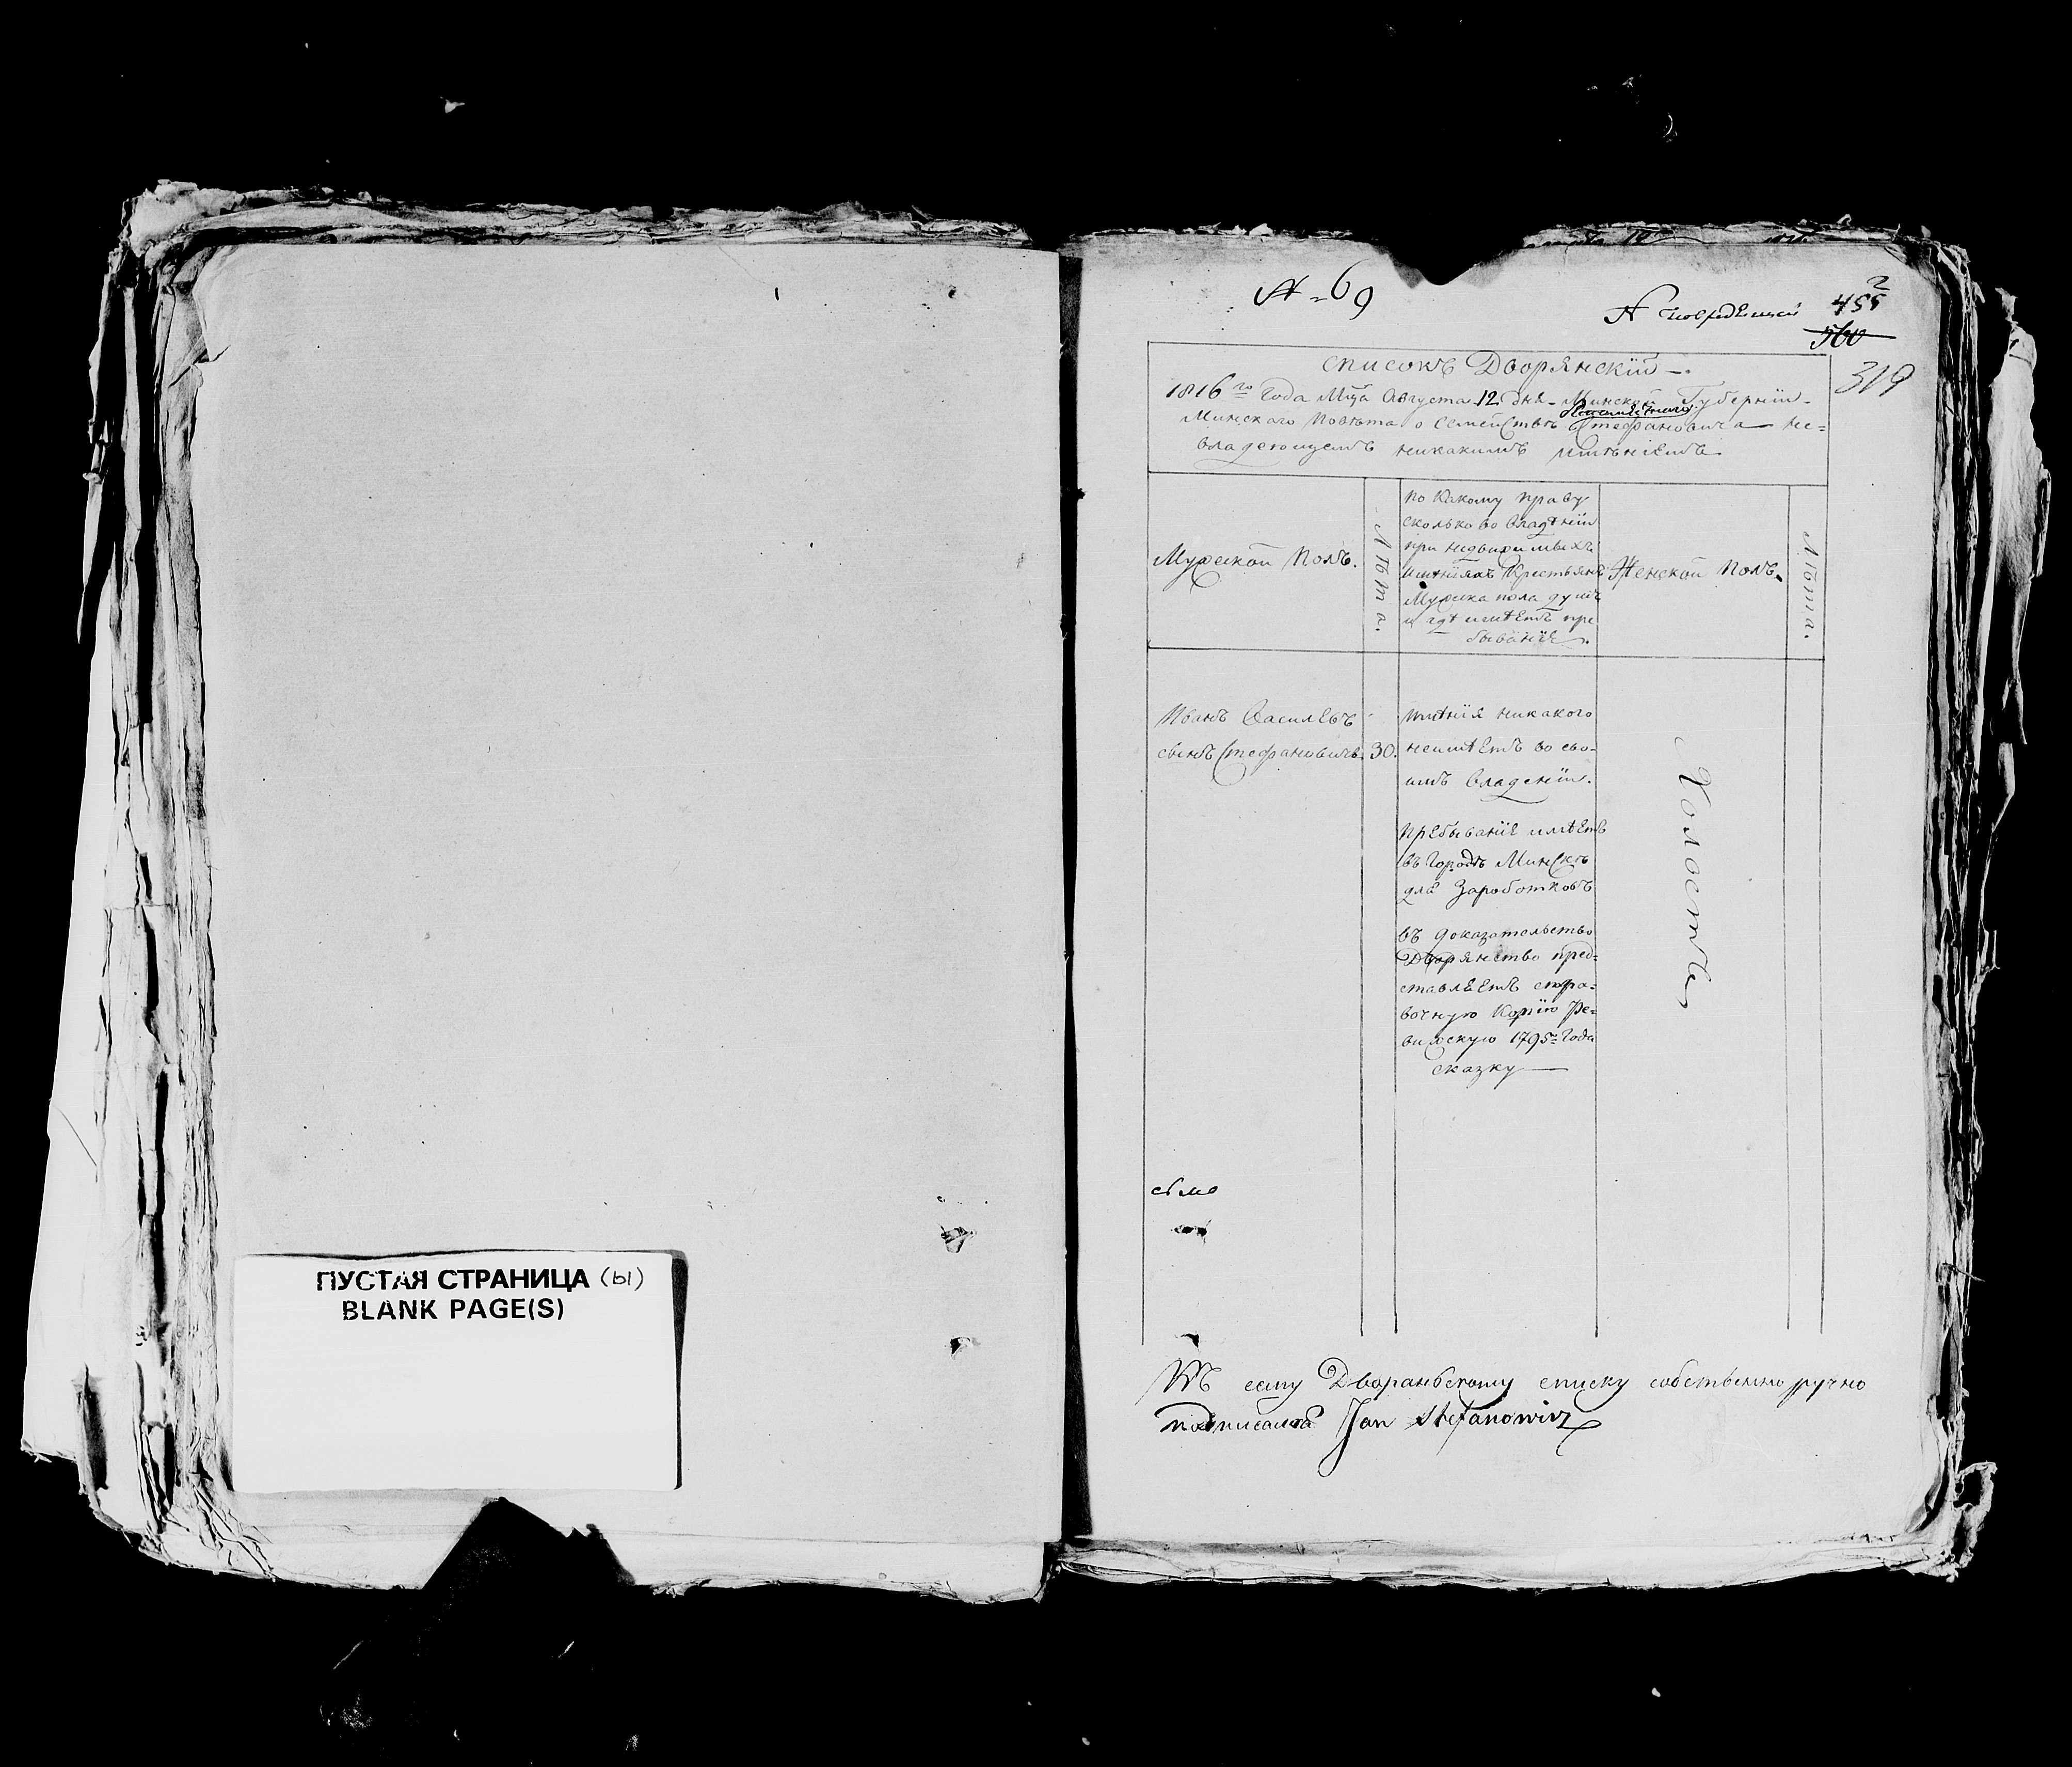 ПУСТАЯ СТРАНИЦА (ы)
BLANK PAGE(S)
№ 69
455
2
560
319
Списокъ Дворянскій
1816го Года Мца Августа 12 дня Минской Губерніи
Минскаго Повѣта о Семействѣ Стефановича не=
владеющемъ никакимъ имѣніемъ
Мужеской Полъ.
Лѣта.
По Какому праву
сколько во владѣніи
при недвижимыхъ
имѣніяхъ Крестьянъ
Мужска пола душъ
и гдѣ имѣетъ пре
бываніе.
Женской Полъ.
Лѣта.
Иванъ Васильевъ
сынъ Стефановичъ.
30.
Имѣнія никакого
неимѣетъ во сво-
имъ Владеніи.
Пребываніе имѣетъ
въ Городѣ Минскѣ
для Заработковъ
въ доказательство
Дворянство пред=
ставляетъ спра=
вочную Копію Ре=
визскую 1795го Года
сказку
Холостъ
Къ сему Дворанскому списку собственноручно
подписалса Jan Stefanowicz